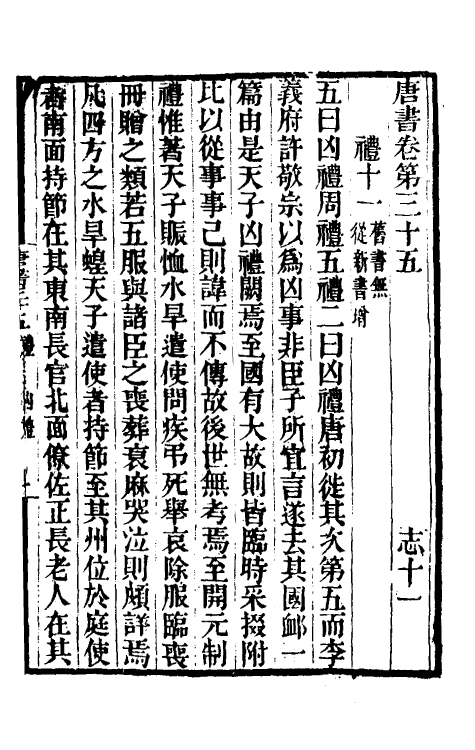 唐書卷第三十五　志十一
禮十一舊書無從新書增
五曰凶禮周禮五禮二曰凶禮唐初徙其次第五而李
義府許敬宗以爲凶事非臣子所宜言遂去其國卹一
篇由是天子凶禮闕焉至國有大故則皆臨時采掇附
比以從事事已則諱而不傳故後世無考焉至開元制
禮惟著天子賑恤水旱遣使問疾弔死舉哀除服臨喪
冊贈之類若五服與諸臣之喪葬衰麻哭泣則頗詳焉
凡四方之水旱蝗天子遣使者持節至其州位於庭使
者南面持節在其東南長官北面僚佐正長老人在其